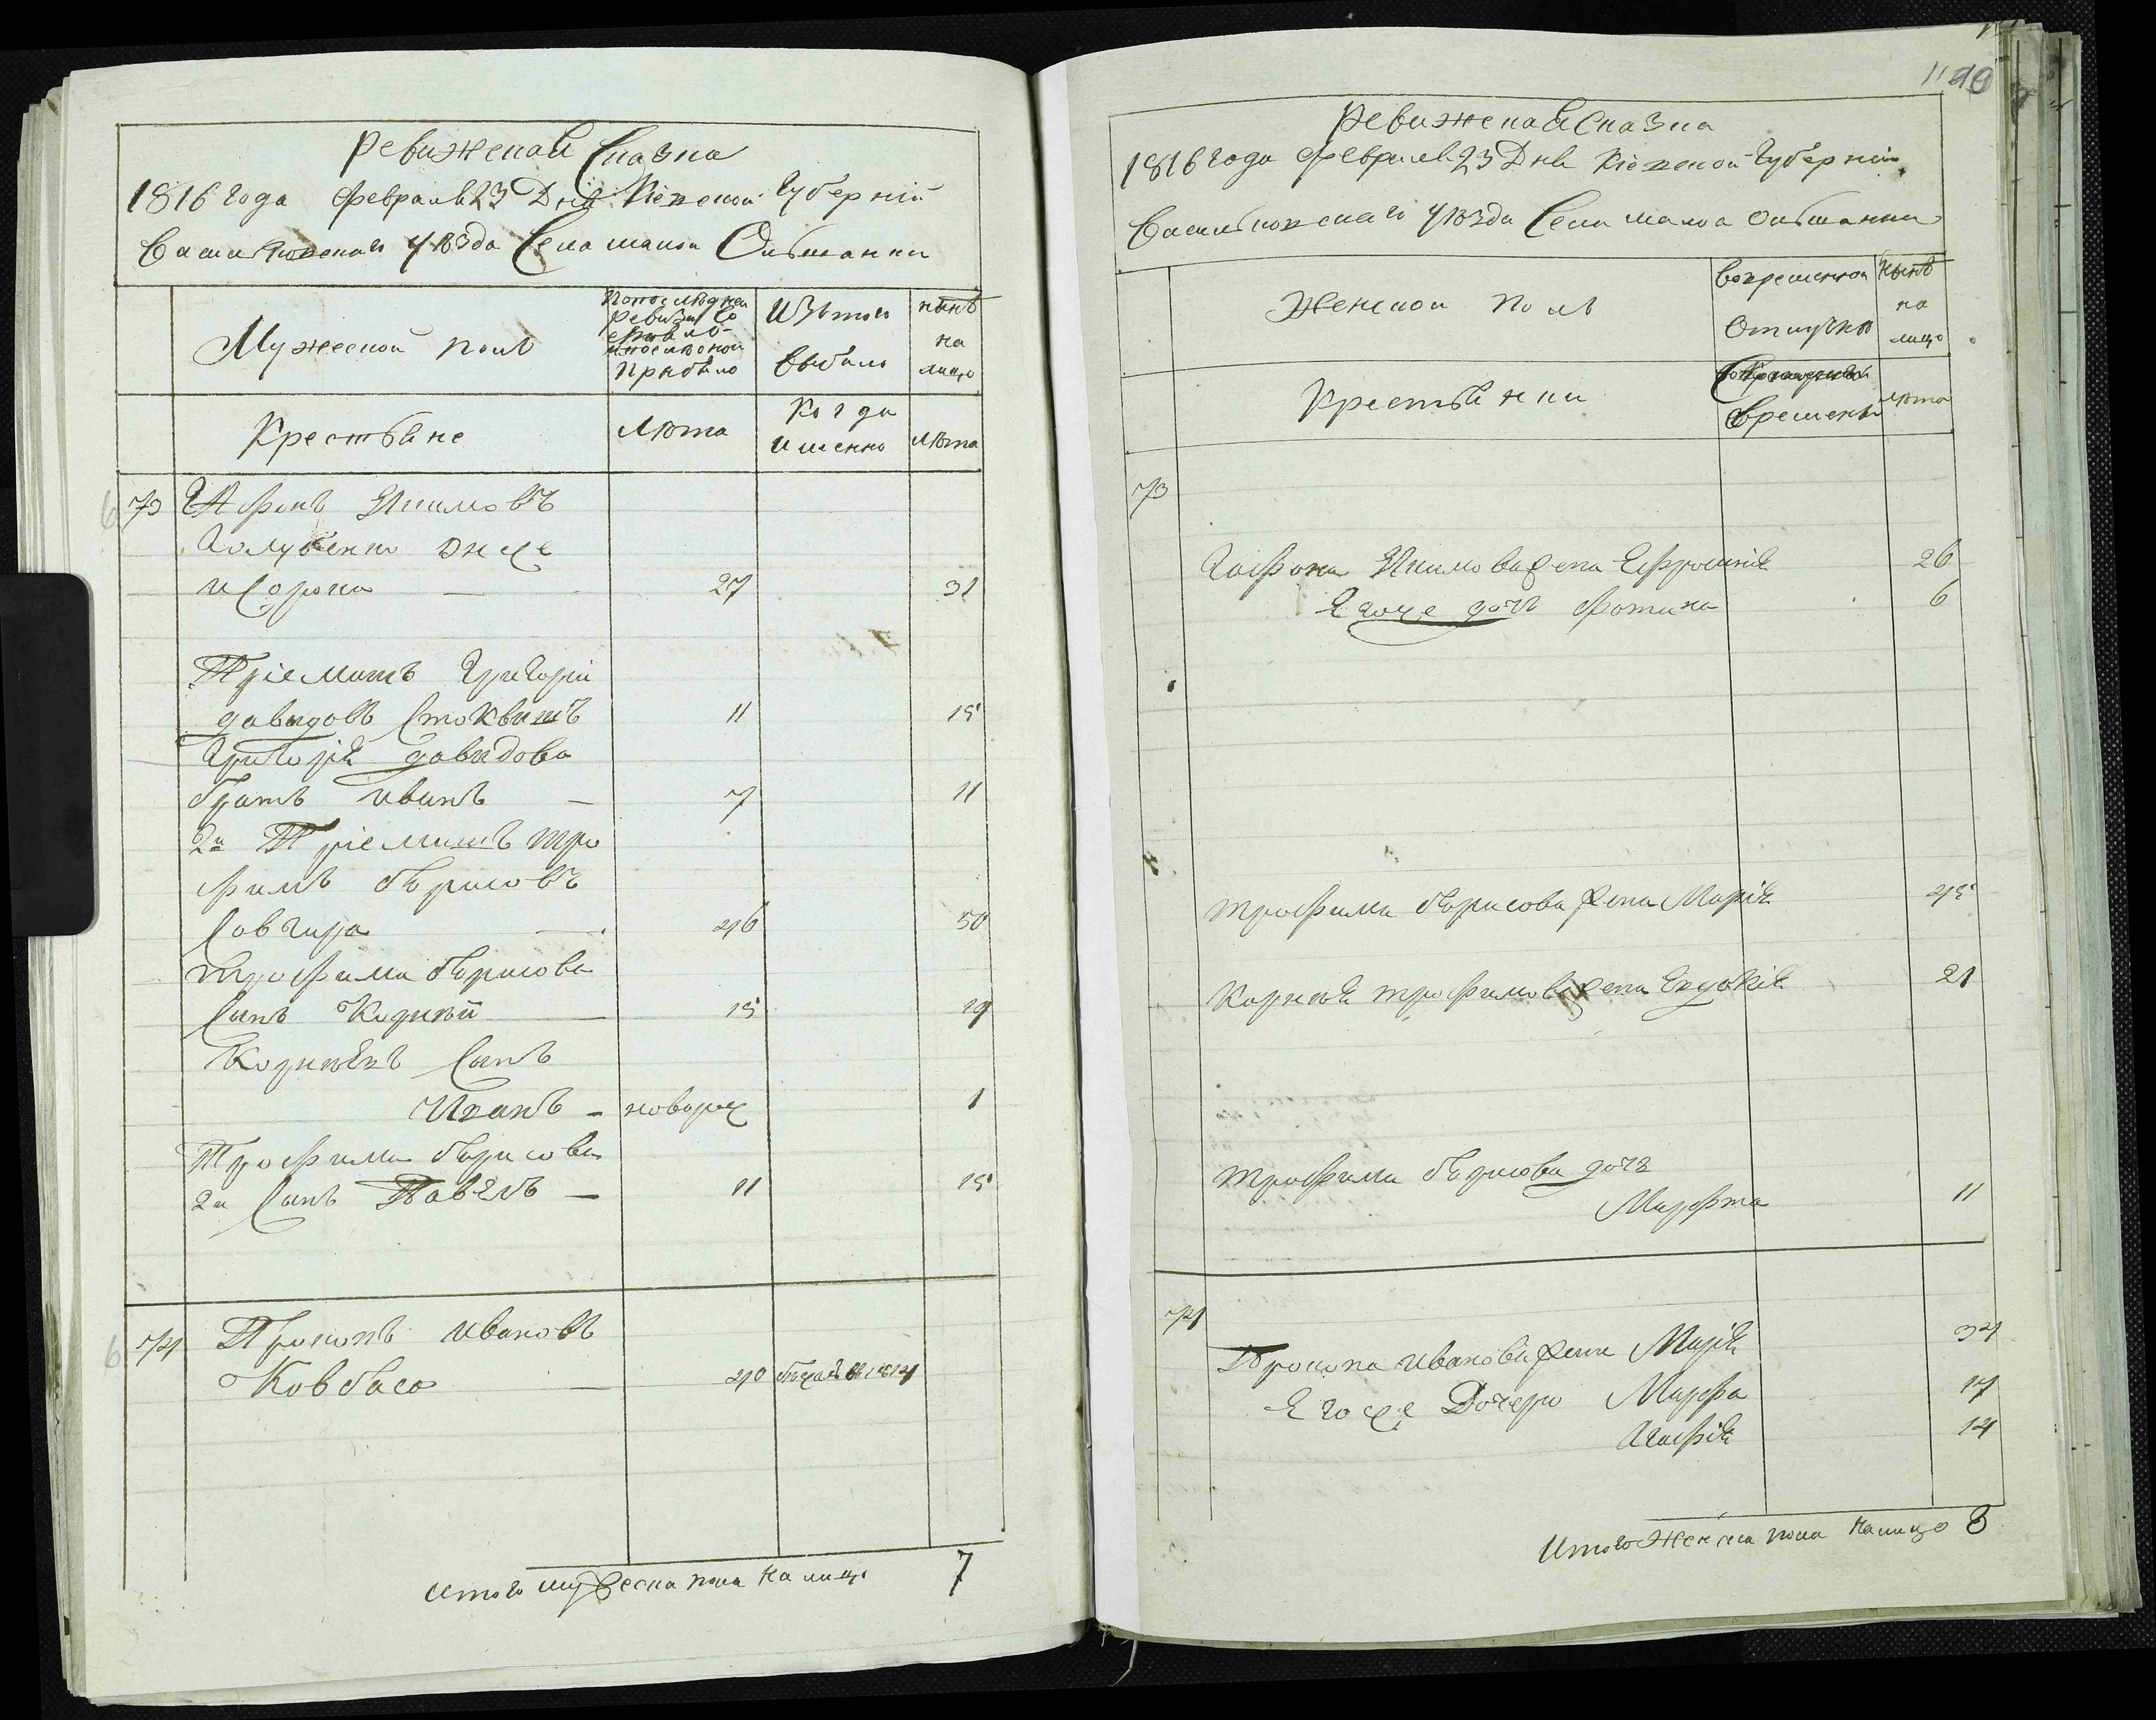 Ревижская Сказка
1816 года февраля 23 Дня Кіевской Губерніи
Васильковскаго уѣзда Села малой Ольшанки
Мужеской полъ
По последней ревизіи состояло и после оной прибыло
Изъ того выбыло
нынѣ на лицо
Крестьяне
Лѣта
Когда именно
Лѣта
73
Якимовъ
Голубенко онже
и Сорока 27 31
Пріемышъ Григорій
давыдовъ 11 15
Григорія давыдова
братъ иванъ 7 11
2й Пріемышъ тро
фимъ борисовъ
Савчира 46 50
трофима борисова
Сынъ Корнѣй 15 19
Корнѣевъ Сынъ
Иванъ - новорож 1
Трофима борисова
2й Сынъ Павелъ - 11 15
74 Прокопъ ивановъ
Ковбаса 40 бѣжалъ в 1814
итого мужеска пола на лицо 7
1190
Ревижская Сказка
1816 года февраля 23 Дня Кіевской Губерніи
Васильковскаго уѣзда Села малой Ольшанки
Женской полъ
Во временной отлучкѣ
Нынѣ на лицо
Крестьянки
времени
лѣта
73
Якимова жена Ефросинія 26
Егоже дочь фотина 6
трофима борисова жена Марія 45
Корнѣя трофимова жена Евдокія 21
трофима борисова дочь
Марфта 11
74
Прокопа иванова жена Марія 34
Егоже Дочери Марфа 17
Агафія 14
итого Женска пола налицо 8